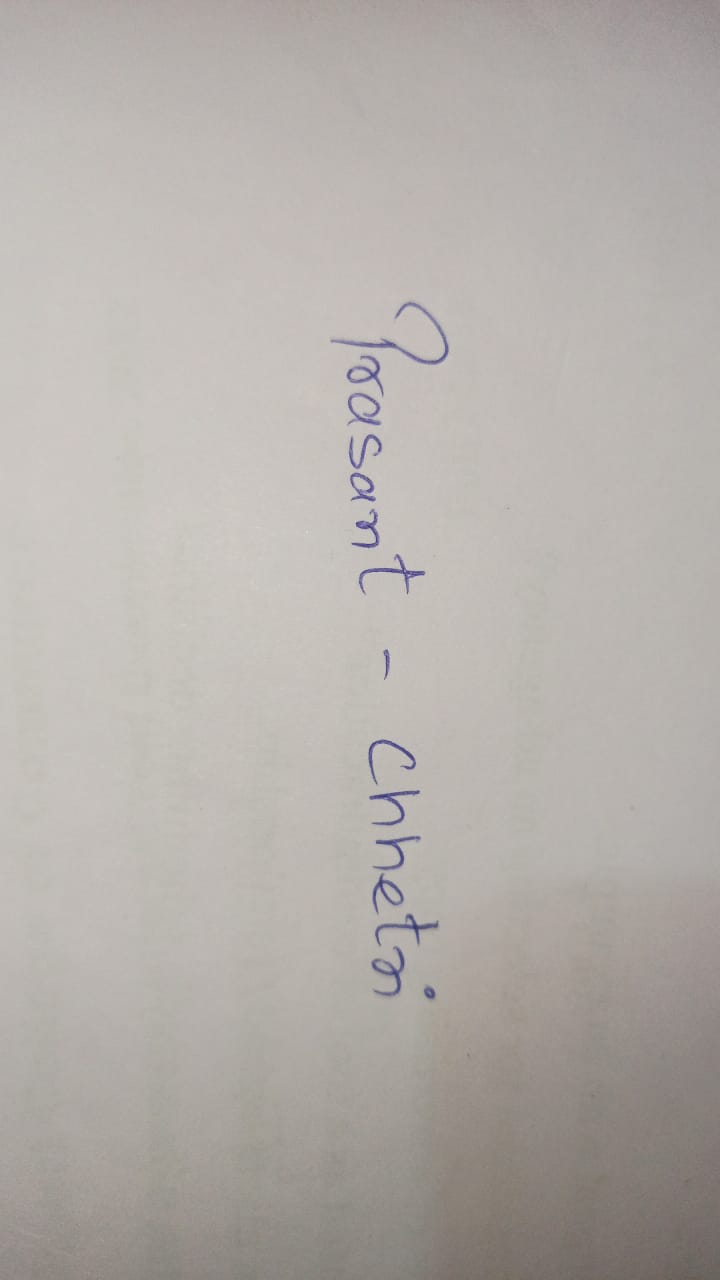 Prasant - Chhetri